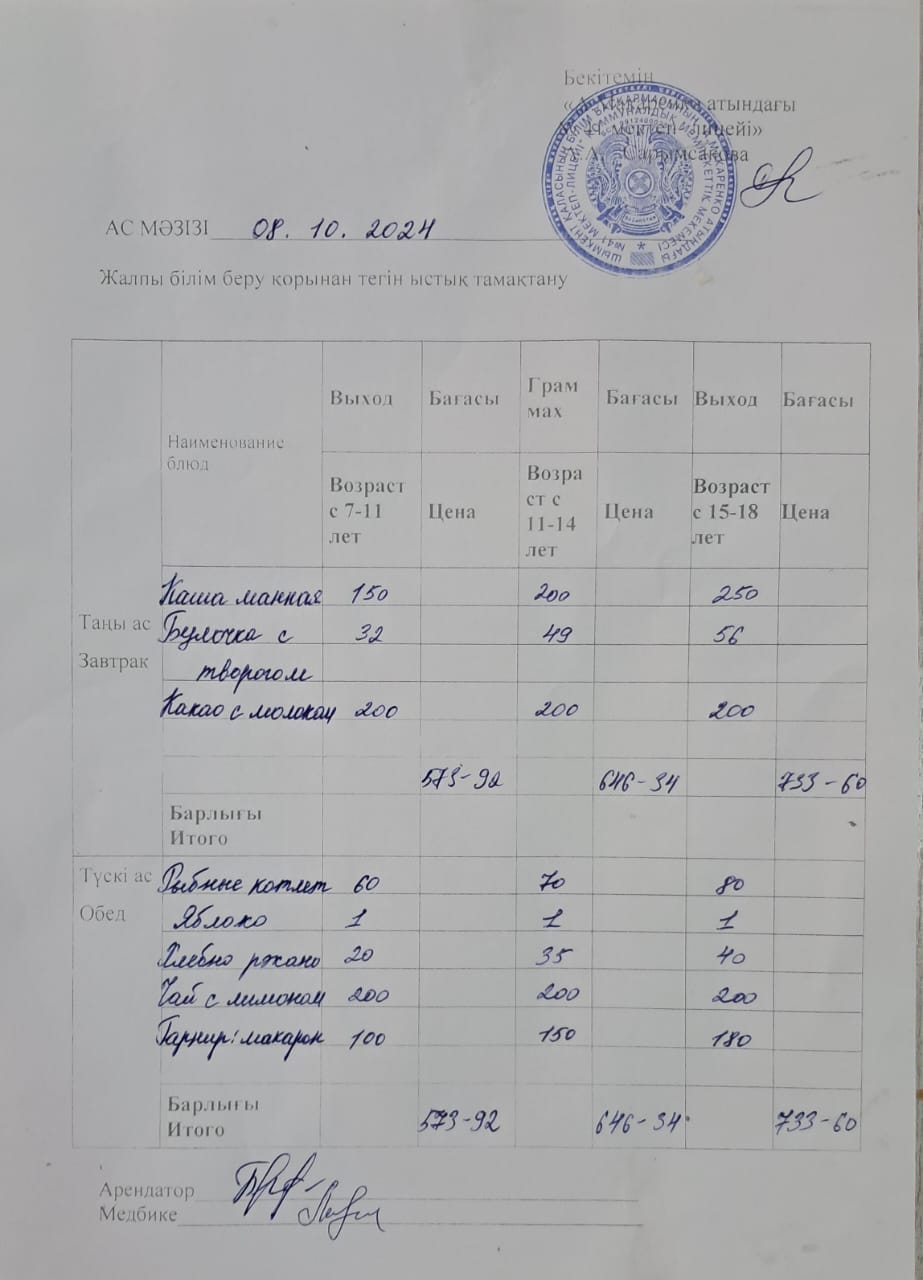 Бекітемін
атындағы
мектеп лицейі»
А. Сарымсакова
АС МӘЗІЗІ 08. 10. 2024
Жалпы білім беру қорынан тегін ыстық тамақтану
Наименование блюд
Выход Бағасы Грам мах Бағасы Выход Бағасы
Возраст с 7-11 лет Цена Возра ст с 11-14 лет Цена Возраст с 15-18 лет Цена
Таңы ас
Завтрак
Каша манная 150 200 250
Булочка с 32 49 56
творогом
Какао с молоком 200 200 200
573-92 646-34 733-60
Барлығы
Итого
Түскі ас
Обед
Рыбные котлет 60 70 80
Яблоко 1 1 1
Хлебно ржано 20 35 40
Чай с лимоном 200 200 200
Гарнир: макарон 100 150 180
Барлығы
Итого 573-92 646-34 733-60
Арендатор
Медбике